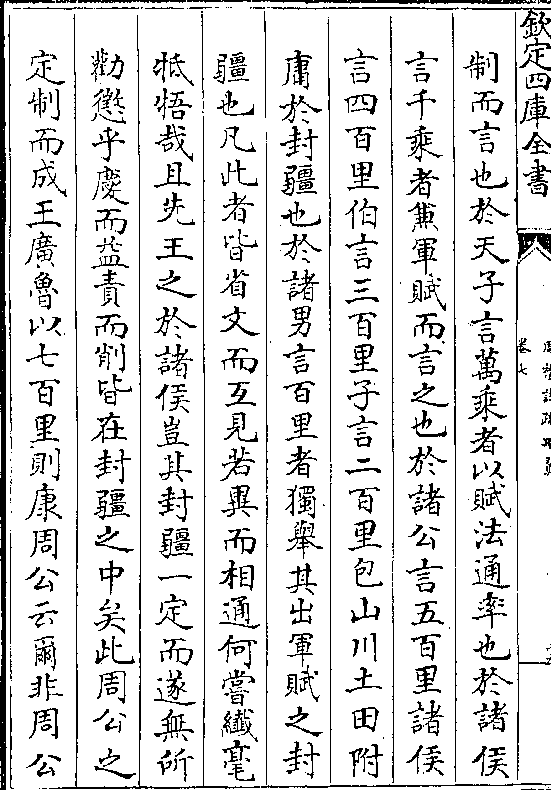 欽定四庫全書
卷七
制而言也於天子言萬乘者以賦法通率也於諸侯
言千乘者兼軍賦而言之也於諸公言五百里諸侯
言四百里伯言三百里子言二百里包山川土田附
庸於封疆也於諸男言百里者獨舉其出軍賦之封
疆也凡此者皆省文而互見若異而相通何嘗纎毫
牴牾哉且先王之於諸侯豈其封疆一定而遂無所
勸懲乎慶而益責而削皆在封疆之中矣此周公之
定制而成王廣魯以七百里則康周公云爾非周公